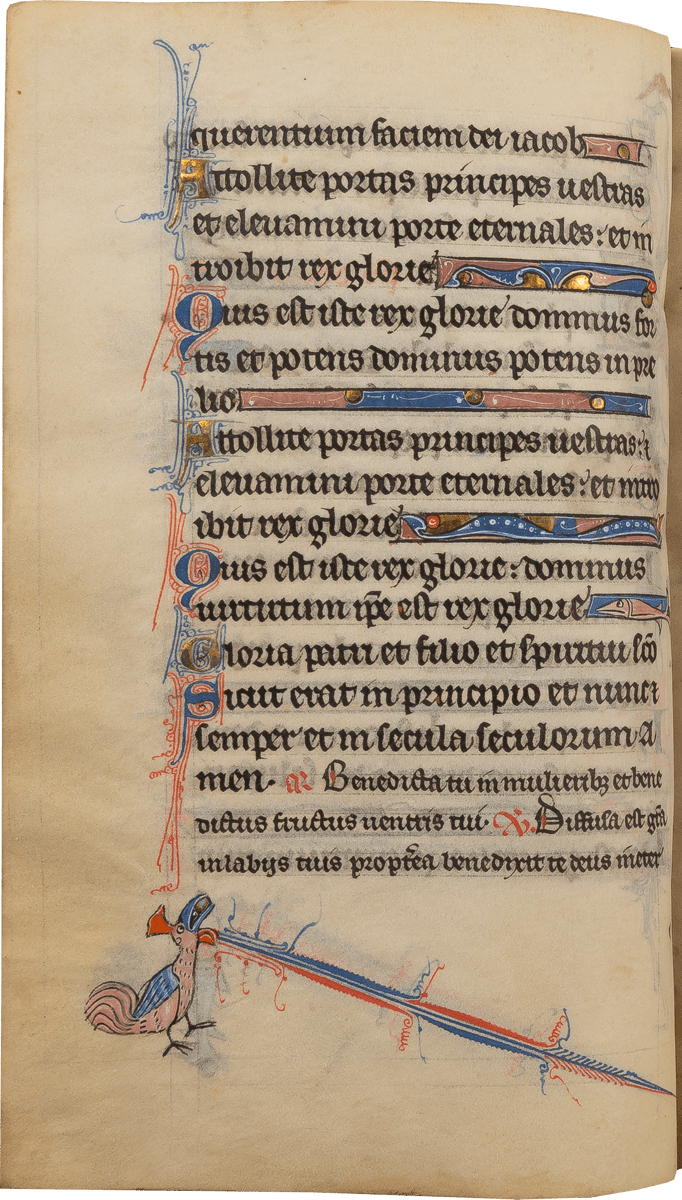 querentium faciem dei iacob.
Attollite portas principes uestras
et eleuamini porte eternales: et in
troibit rex glorie
Quis est iste rex glorie dominus for
tis et potens dominus potens in pre
lio.
Attollite portas principes uestras: ⁊
eleuamini porte eternales: et intro
ibit rex glorie
Quis est iste rex glorie: dominus
uirtutum ip̄e est rex glorie
Gloria patri et filio et spiritui sc̄o
Sicut erat in principio et nunc ⁊
semper et in secula seculorum A
men. aR Benedicta tu in mulieribꝫ et bene
dictus fructus uentris tui. V. Diffusa est gr̄a
in labijs tuis propt̄ea benedixit te deus in eter